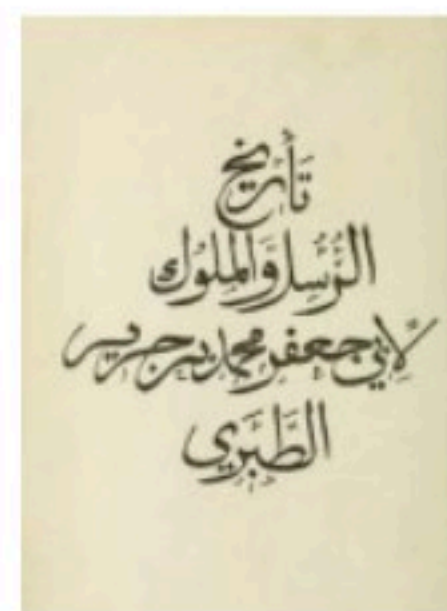 تأريخ
الرُّسُل وَالمُلوك
لأبي جعفر محمد بن جرير
الطَّبَري